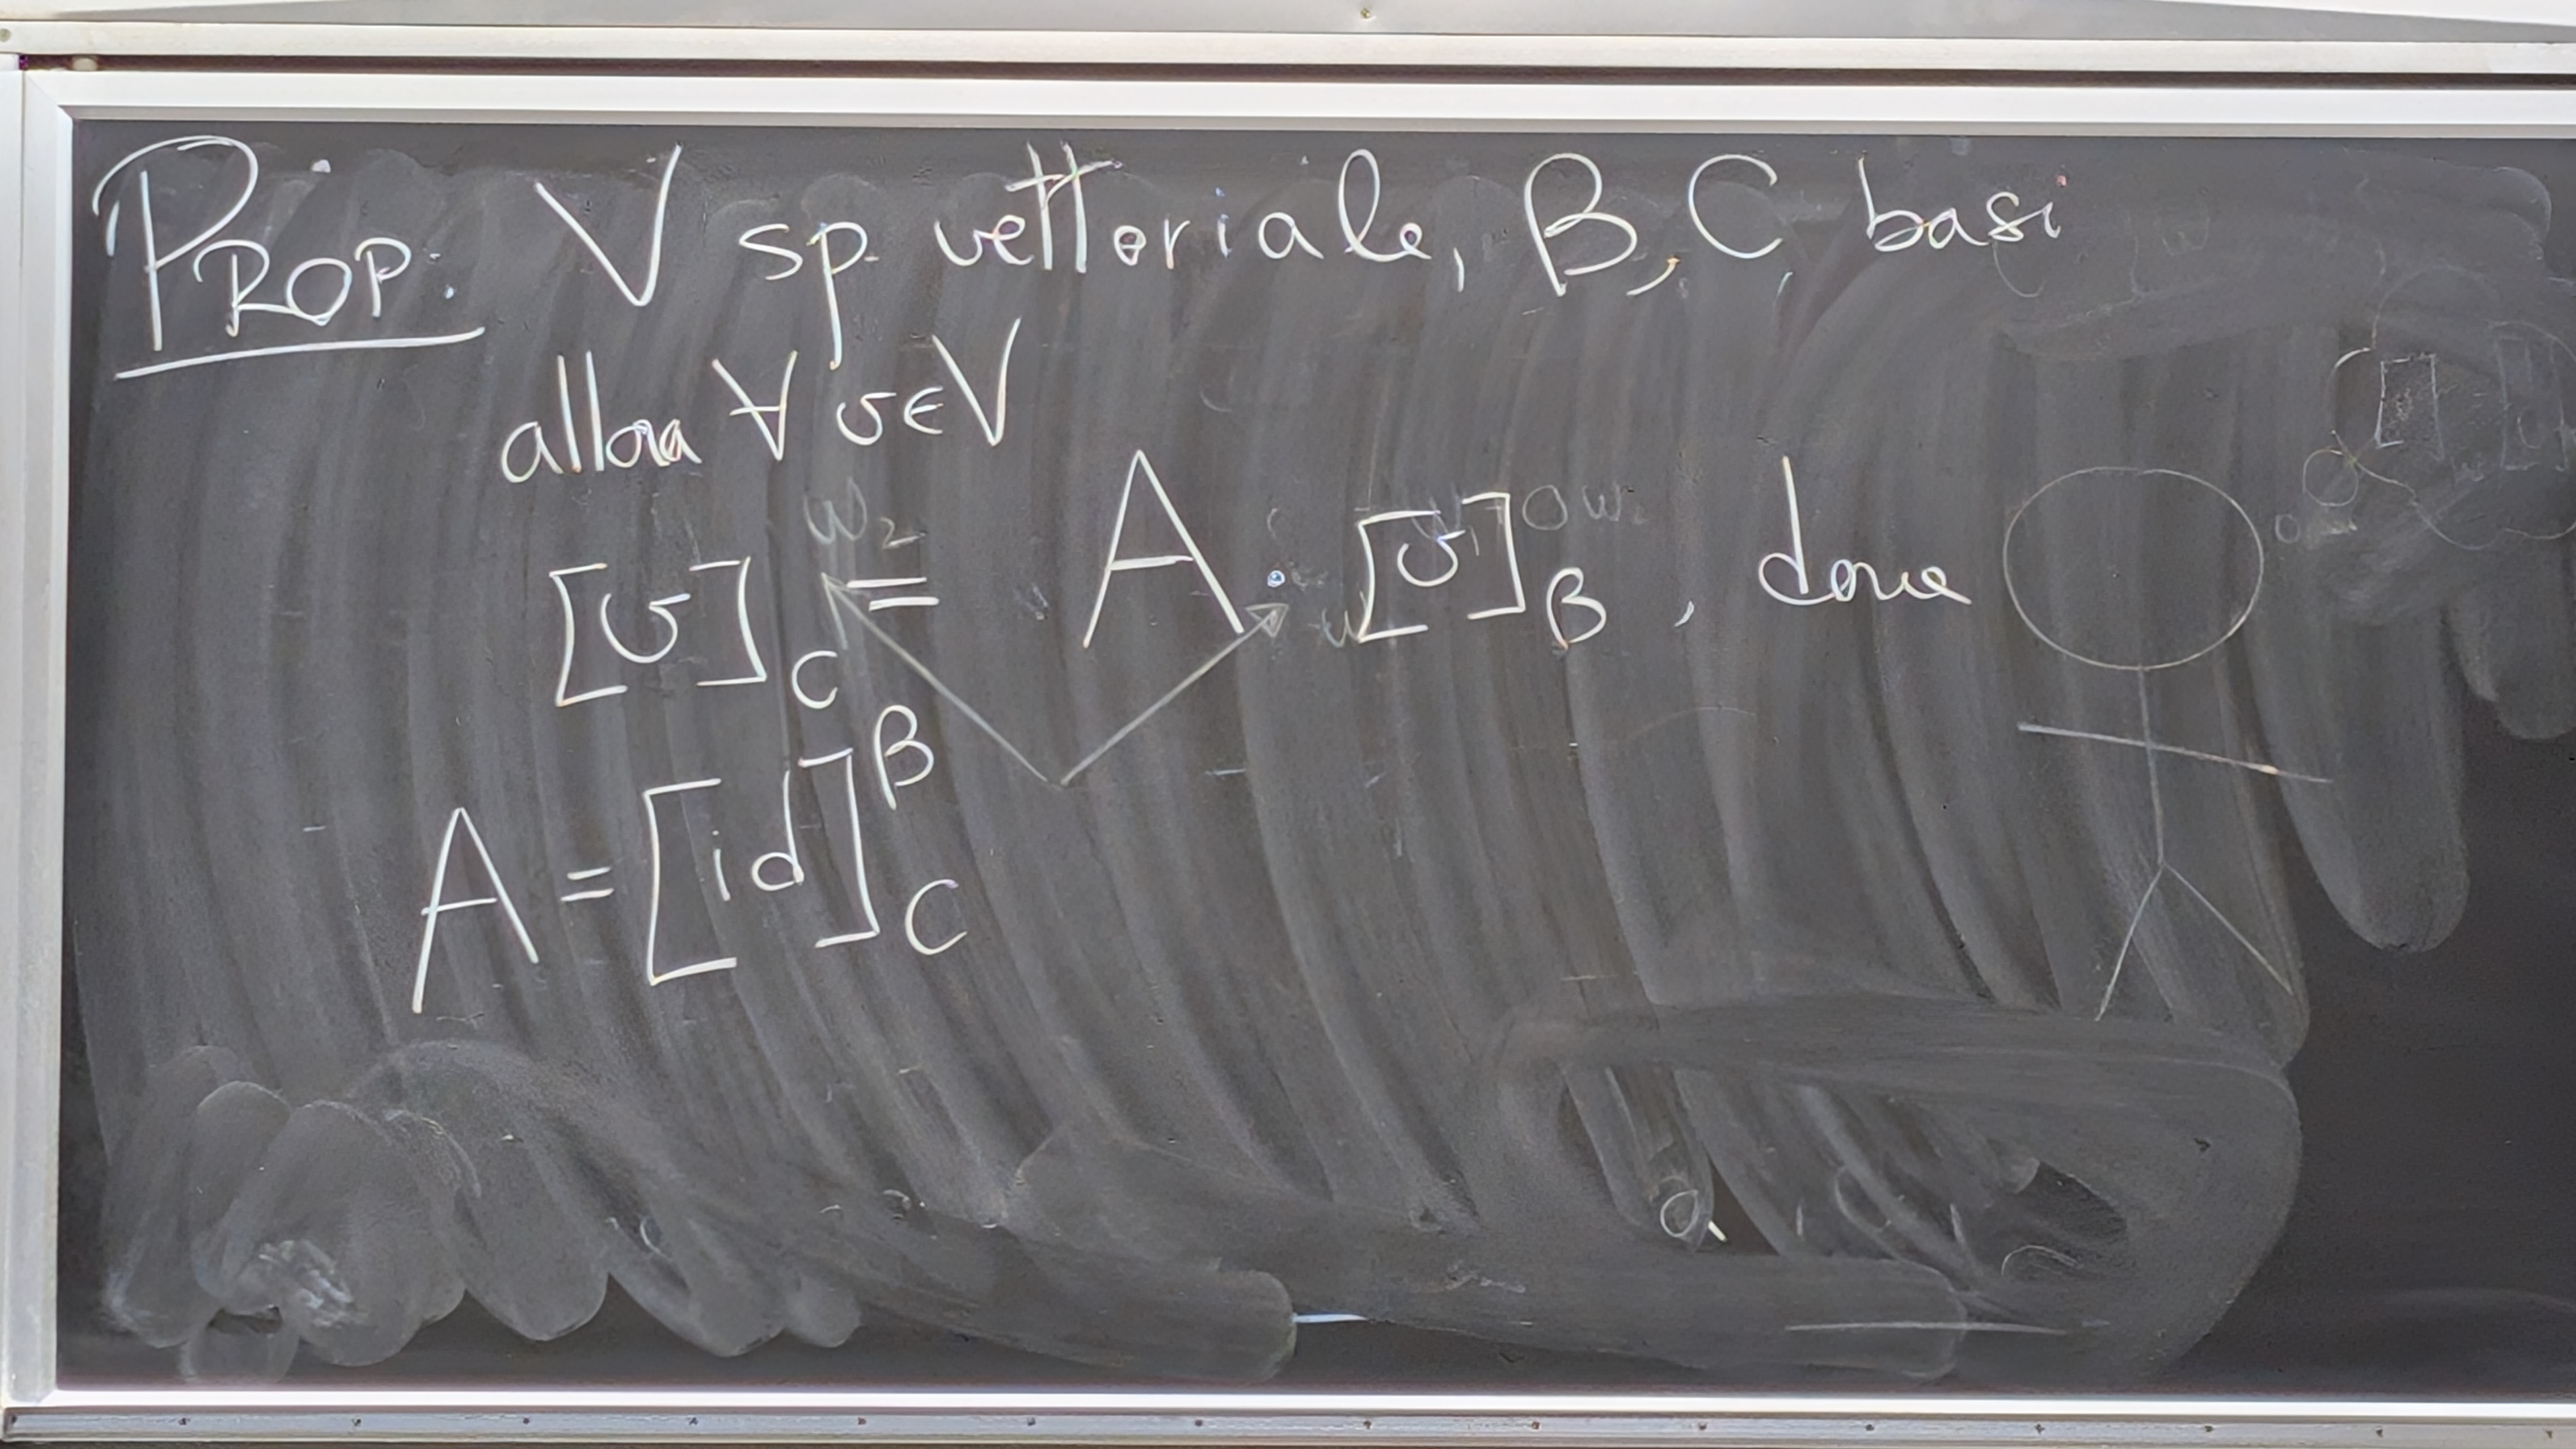 PROP: V sp. vettoriale, B, C, basi
allora ∀ v∈V
[v]_C = A · [v]_B , dove
A = [id]^B_C